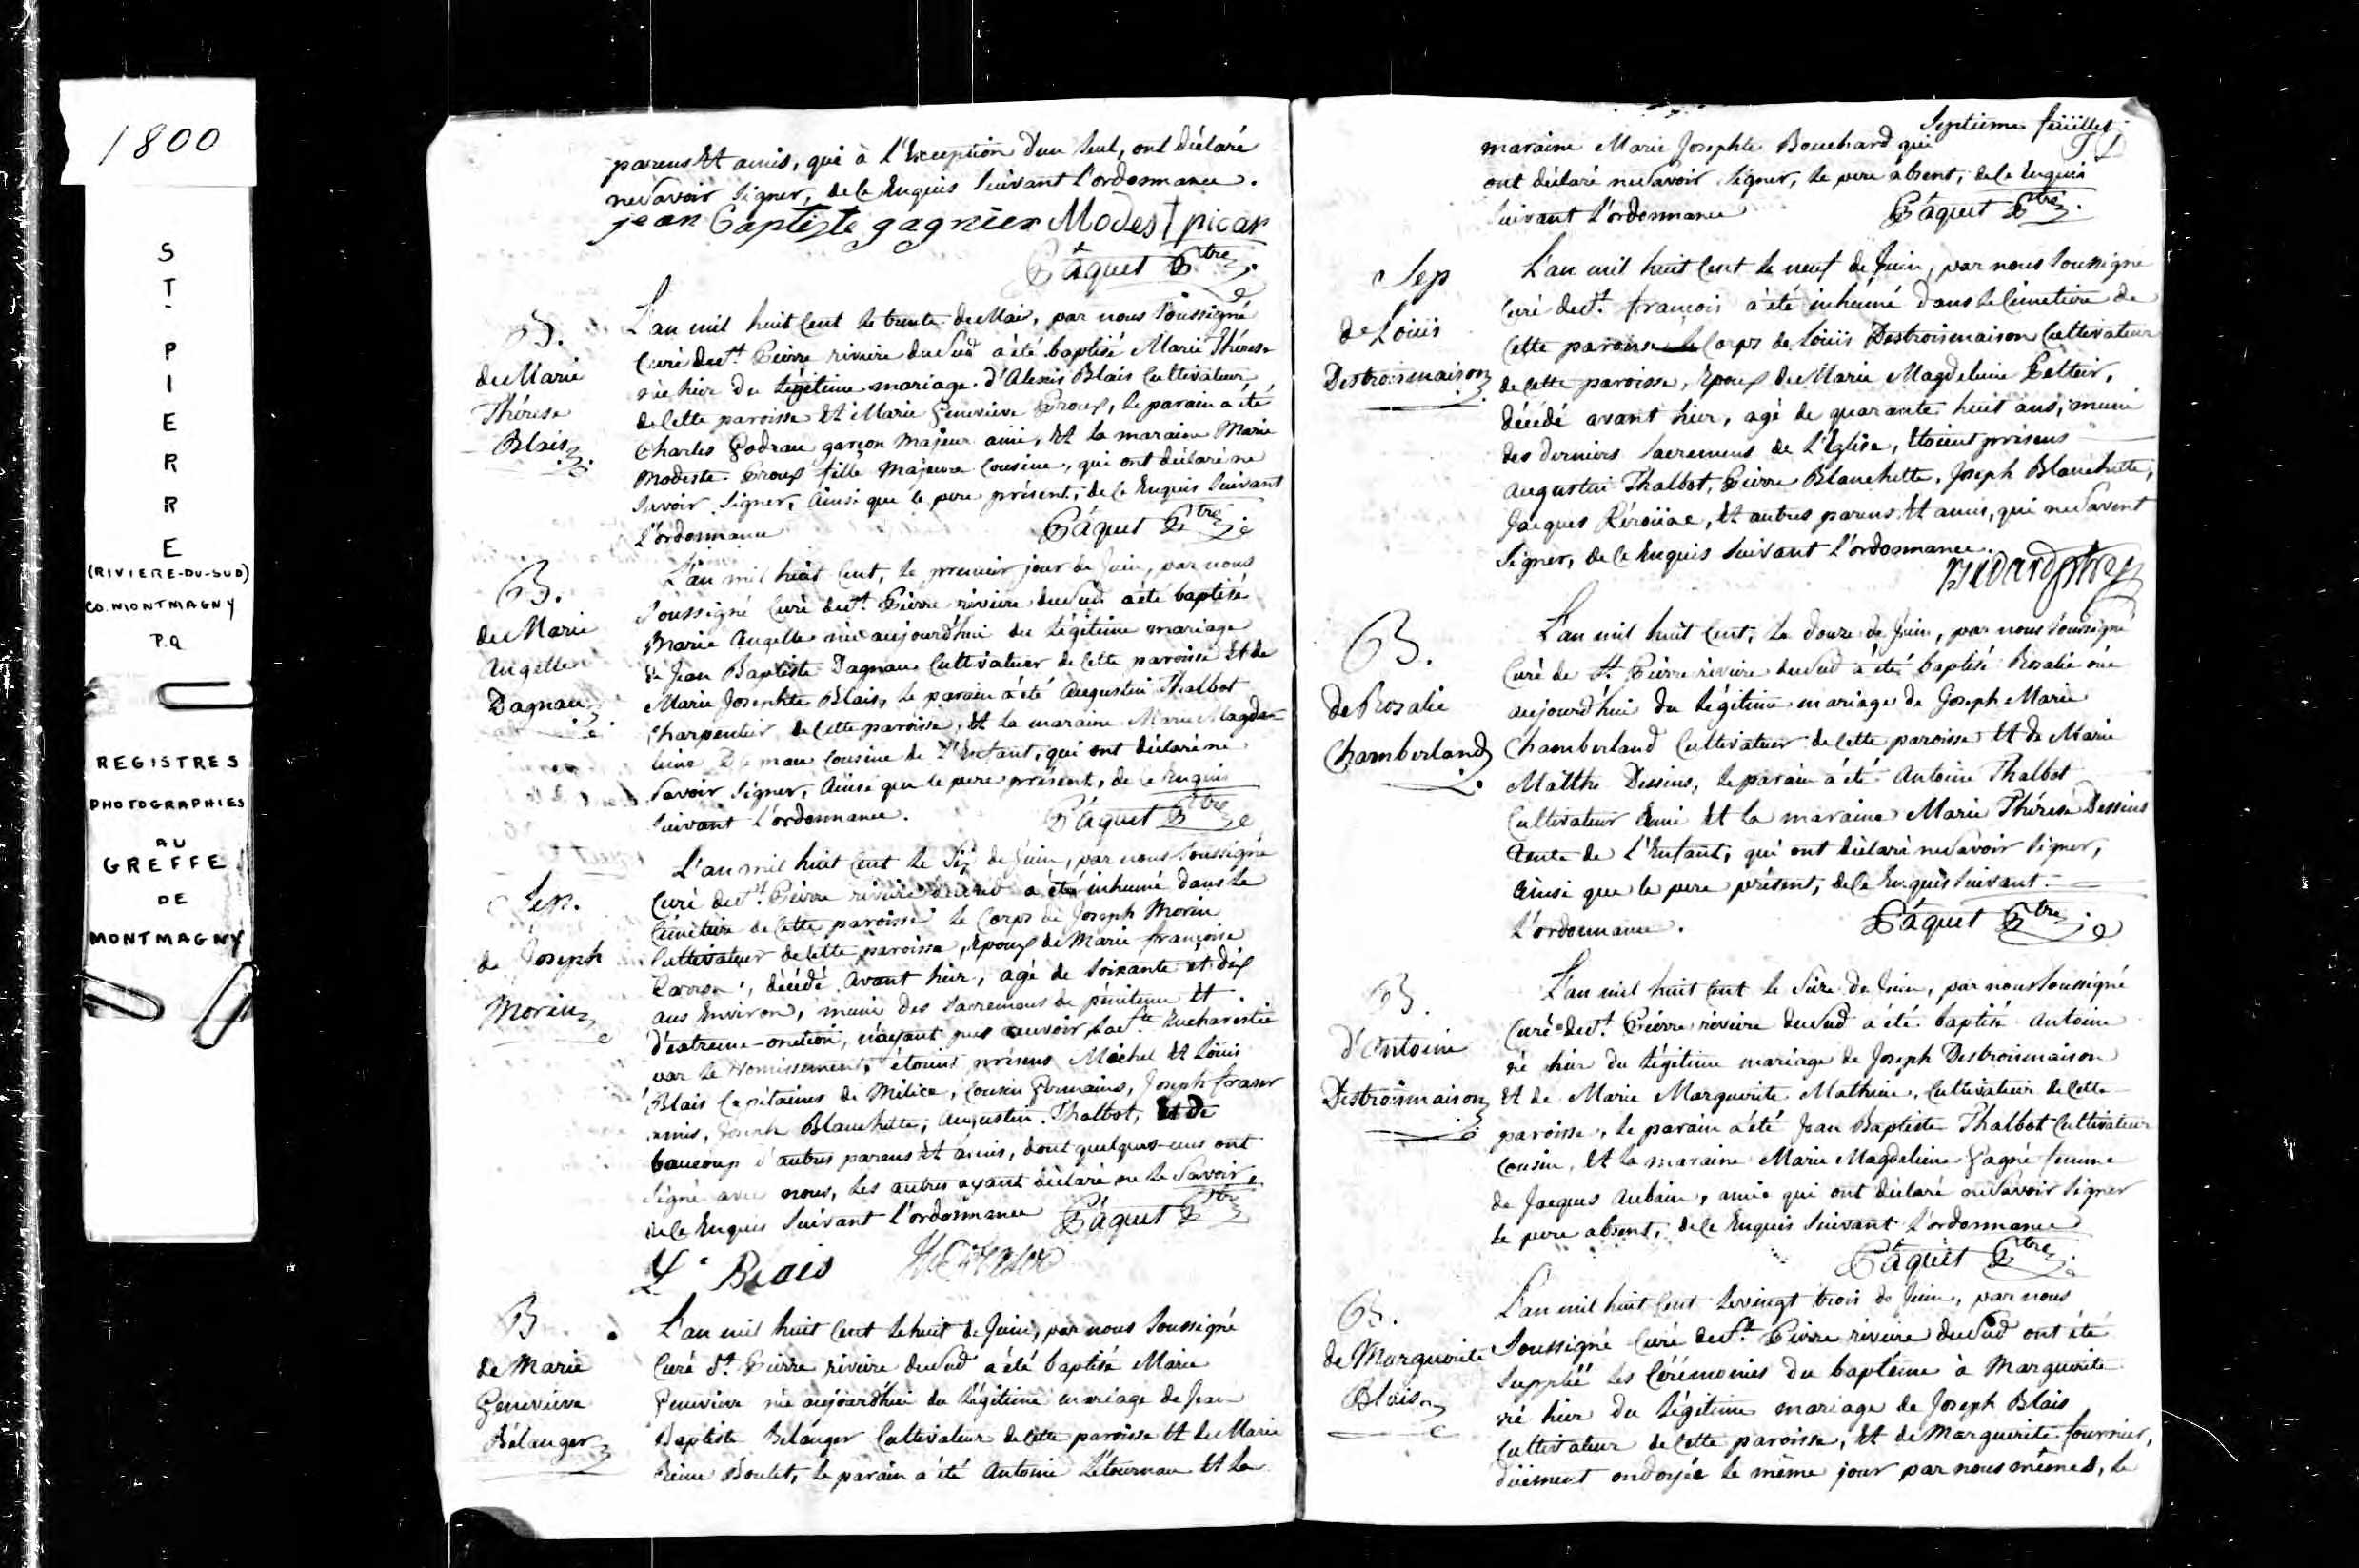 1800
ST-
PIERRE
(RIVIERE-DU-SUD)
CO. MONTMAGNY
P.Q
REGISTRES
PHOTOGRAPHIES
AU
GREFFE
DE
MONTMAGNY
parens Et amis, qui à l'Exception d'un seul, ont déclaré
ne savoir signer, de ce Enquis suivant l'ordonnance.
jean Baptiste gagnier Modest picar
Pâquet Ptre
B.
de Marie
Thérese
Blais
L'an mil huit Cent le trente de Mai, par nous soussigné
Curé de St. Pierre riviere du Sud a été baptisé Marie Thérese
née hier du légitime mariage d'Alexis Blais Cultivateur
de Cette paroisse Et Marie Geneviève Proux, le parain a été
Charles Godrau garçon majeur ami, Et la maraine Marie
Modeste Proux fille Majeure Cousine, qui ont déclaré ne
savoir signer, ainsi que le pere présent, de Ce Enquis suivant
l'ordonnance Pâquet Ptre
B.
de Marie
Angelle
Dagnau
L'an mil huit Cent, le premier jour de Juin, par nous
soussigné Curé de St. Pierre riviere du Sud a été baptisé
Marie Angelle née aujourd'hui du légitime mariage
de Jean Baptiste Dagnau Cultivateur de Cette paroisse Et de
Marie Josephte Blais, le parain a été Augustin Thalbot
Charpentier de Cette paroisse, Et la maraine Marie Magde=
leine cousine de l'Enfant, qui ont déclaré ne
savoir signer, Ainsi que le pere présent, de Ce Enquis
suivant l'ordonnance. Pâquet Ptre
Sep.
de Joseph
Morin
L'an mil huit Cent le Six de Juin, par nous soussigné
Curé de St. Pierre riviere du Sud a été inhumé dans le
Cimetiere de Cette paroisse le Corps de Joseph Morin
Cultivateur de Cette paroisse, Epoux de Marie françoise
décédé Avant hier, agé de soixante et dix
ans Environ, muni des sacremens de pénitence Et
d'extreme-onction, n'ayant pus recevoir la Ste. Eucharistie
par le vomissement, étoient présens Michel Et Loüis
Blais Capitaines de Milice, Cousin Germains, Joseph fraser
amis, Joseph Blanchette, Augustin Thalbot, Et de
baucoup d'autres parens Et amis, dont quelques-uns ont
signé avec nous, les autres ayant déclaré ne le savoir,
de Ce Enquis suivant l'ordonnance Pâquet Ptre
Ls Blais
B
de Marie
Geneviève
Bélanger
L'an mil huit Cent le huit de Juin, par nous soussigné
Curé St. Pierre riviere du Sud a été baptisé Marie
Geneviève née aujourd'hui du légitime mariage de Jean
Baptiste Bélanger Cultivateur de Cette paroisse Et de Marie
Reine Boulet, le parain a été Antoine Létournau Et la
Septieme feüillet
maraine Marie Josephte Bouchard qui
ont déclaré ne savoir signer, le pere absent, de Ce Enquis
suivant l'ordonnance Pâquet Ptre
Sep
de Loüis
Destroismaison
L'an mil huit Cent le neuf de Juin, par nous soussigné
Curé de St. françois a été inhumé dans le Cimetiere de
Cette paroisse le Corps de Loüis Destroismaison Cultivateur
de Cette paroisse, Epoux de Marie Magdeleine Peltier,
décédé avant hier, agé de quarante huit ans, muni
des derniers sacremens de l'Eglise, Etoient présens
Augustin Thalbot, Pierre Blanchette, Joseph Blanchette,
Jacques Kéroüac, Et autres parens Et amis, qui ne savent
signer, de Ce Enquis suivant l'ordonnance.
Bedard ptre
B.
de Rosalie
Chamberland
L'an mil huit Cent, le douze de Juin, par nous soussigné
Curé de St. Pierre riviere du Sud a été baptisé Rosalie née
aujourd'hui du légitime mariage de Joseph Marie
Chamberland Cultivateur de Cette paroisse Et de Marie
Matthe Dessins, le parain a été Antoine Thalbot
Cultivateur ami Et la maraine Marie Thérese Dessins
tente de l'Enfant, qui ont déclaré ne savoir signer,
ainsi que le pere présent, de Ce Enquis suivant
l'ordonnance. Pâquet Ptre
B.
d'Antoine
Destroismaison
L'an mil huit Cent le Seize de Juin, par nous soussigné
Curé de St. Pierre riviere du Sud a été baptisé Antoine
né hier du légitime mariage de Joseph Destroismaison
Et de Marie Marguerite Mathieu, Cultivateur de Cette
paroisse, le parain a été Jean Baptiste Thalbot Cultivateur
Cousin, Et la maraine Marie Magdeleine Gagné femme
de Jacques Aubain, amie qui ont déclaré ne savoir signer
le pere absent, de Ce Enquis suivant l'ordonnance
Pâquet Ptre
B.
de Marguerite
Blais
L'an mil huit Cent le vingt trois de Juin, par nous
soussigné Curé de St. Pierre riviere du Sud ont été
supplée les Cérémonies du baptême à Marguerite
née hier du légitime mariage de Joseph Blais
Cultivateur de Cette paroisse, Et de Marguerite fournier,
duëment ondoyée le même jour par nous mêmes, le